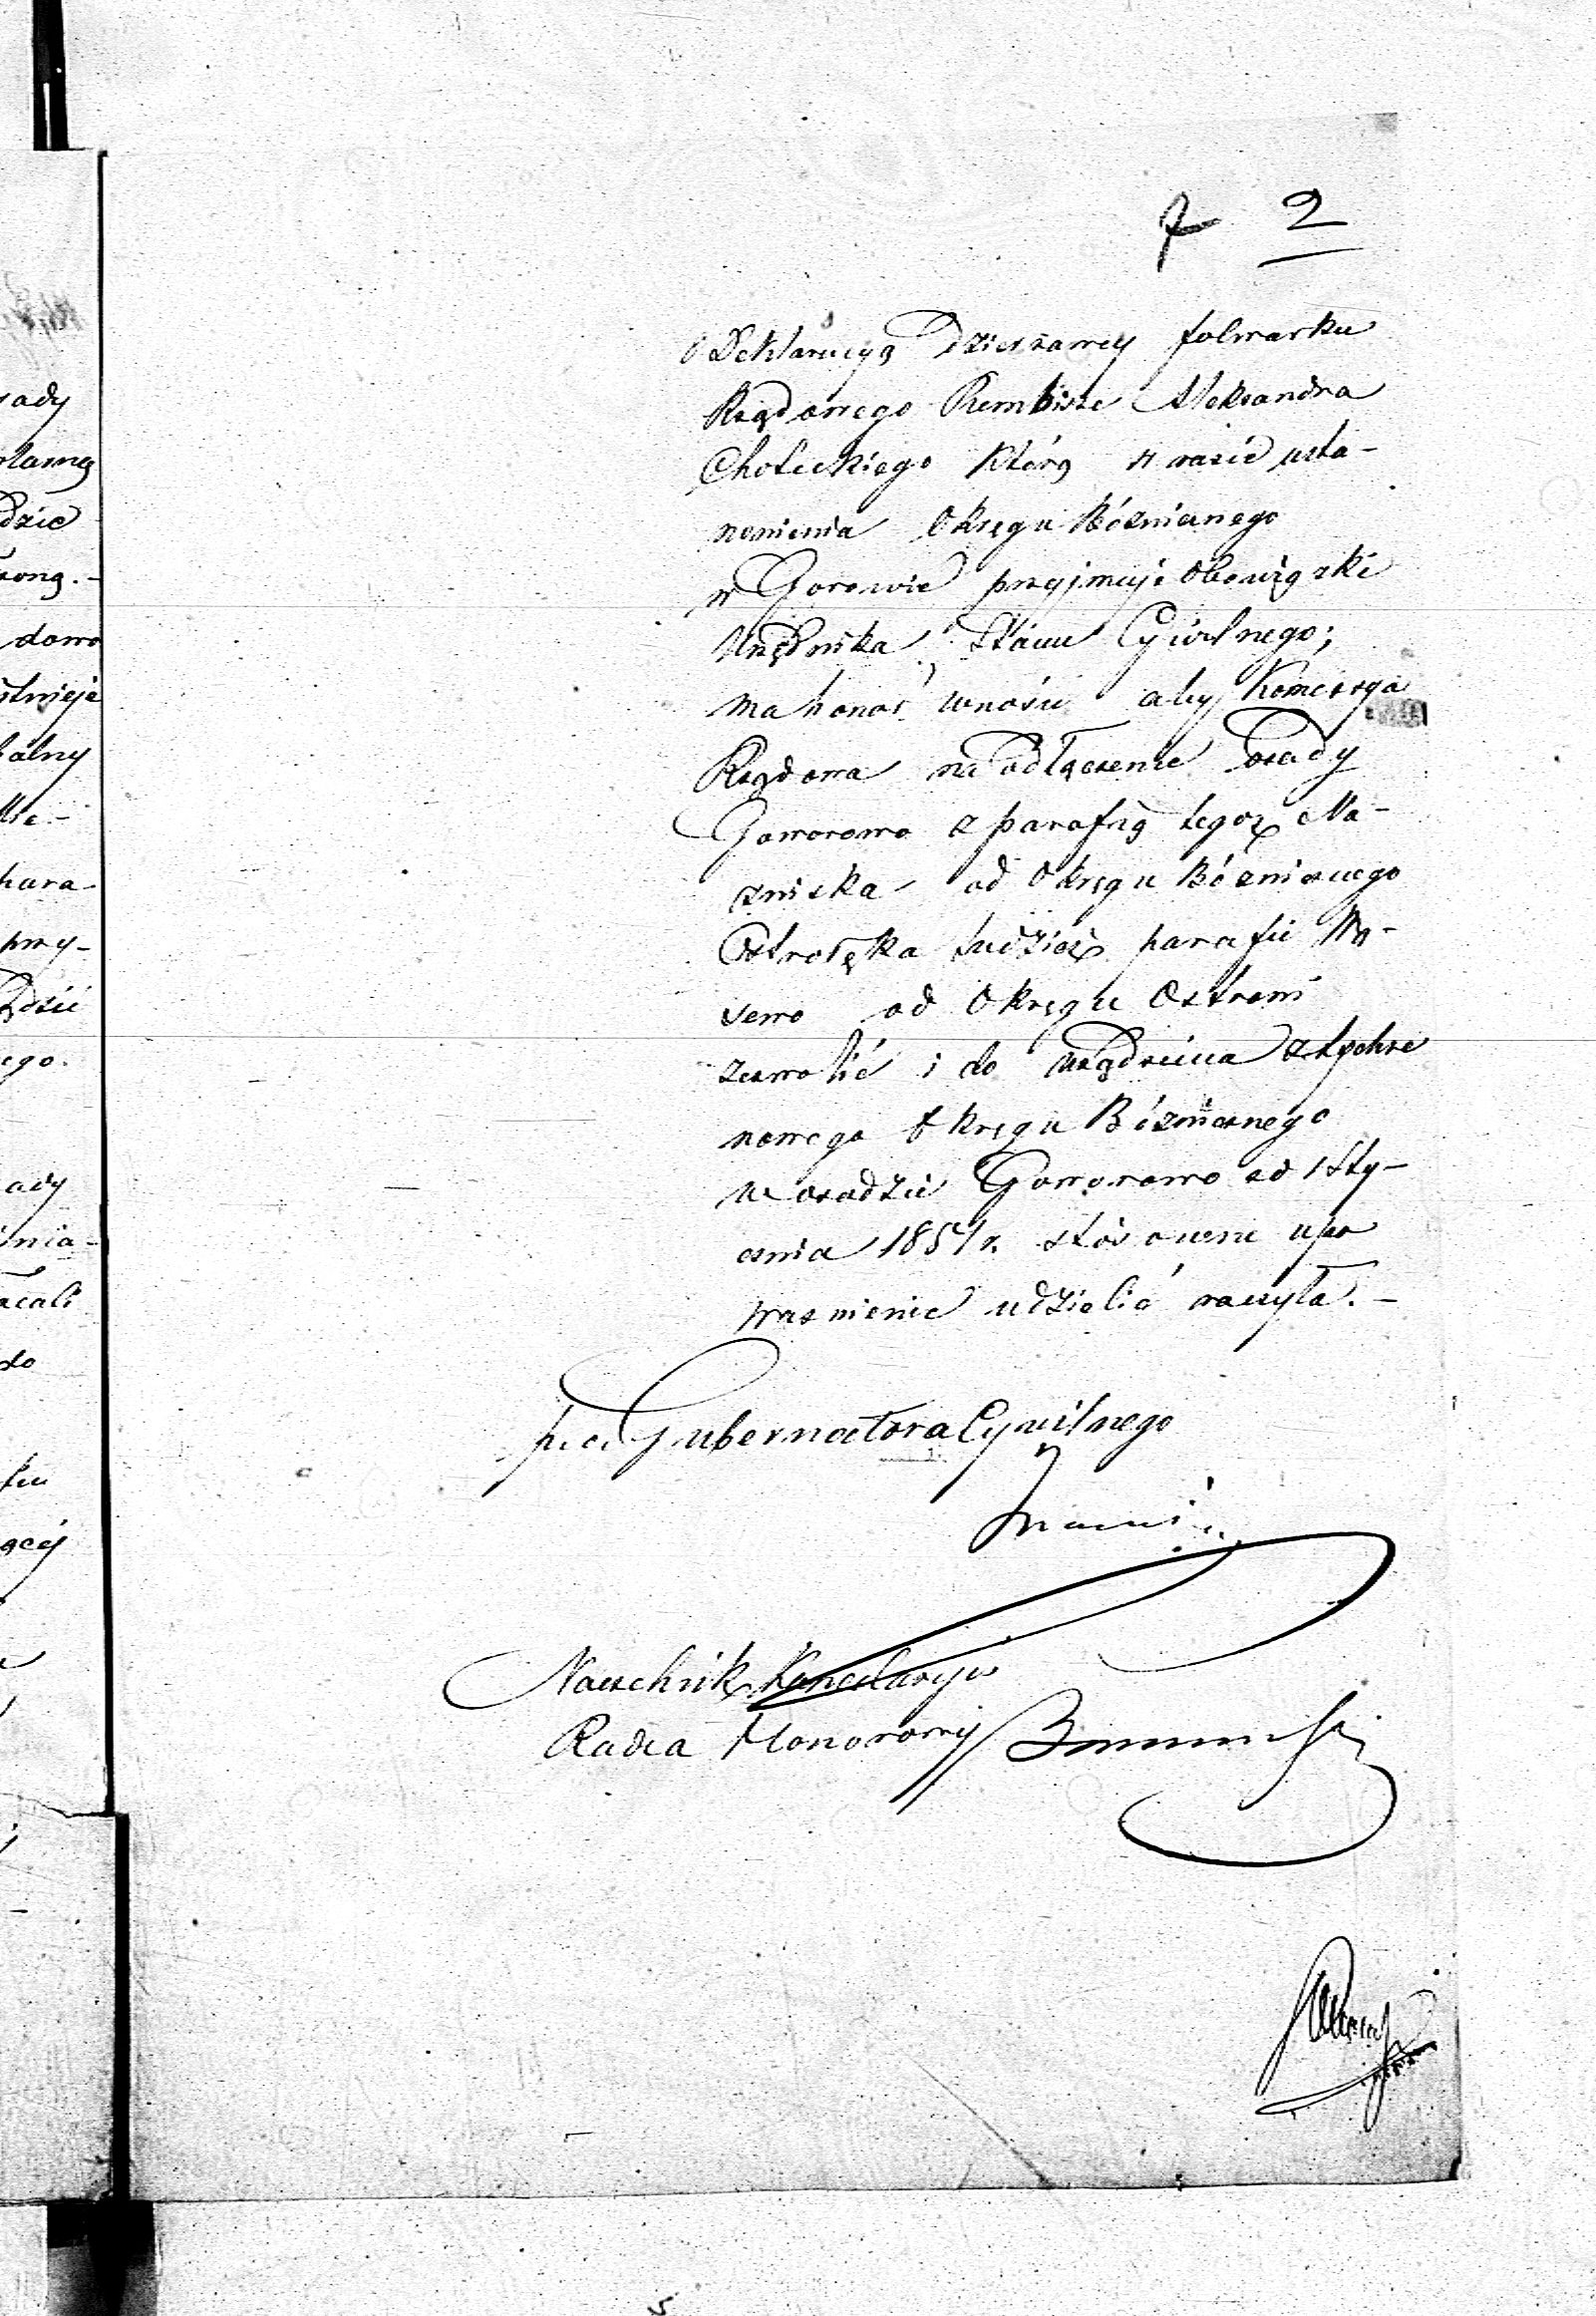 7 2
Deklaracyą Dzierzawcy folwarku
Rządowego Rembisze Aleksandra
Choteckiego którą w razie usta-
nowienia Okręgu Bóżnicznego
w Gorowie przyjmuje Obowiązki
Urzędnika Stanu Cywilnego;
ma honor wnosić aby Kommissya
Rządowa na odłączenie Osady
Goworowo z parafią tegoż Na-
zwiska od Okręgu Bóżnicznego
Ostrołęka tudzież parafii Wą-
sewo od Okręgu Ostrowi
zezwolić i do urządzenia ztychże
nowego Okręgu Bóżnicznego
w osadzie Goworowo od 1 Sty-
cznia 1851 r. stósowne upo
ważnienie udzielić raczyła.-
p.o. Gubernatora Cywilnego
Naczelnik Kancelaryi
Radca Honorowy
5
ady
dzie
zoną.-
dowo
istnieje
alny
hara-
przy-
ego.
ady
nia-
acali
do
ącéj